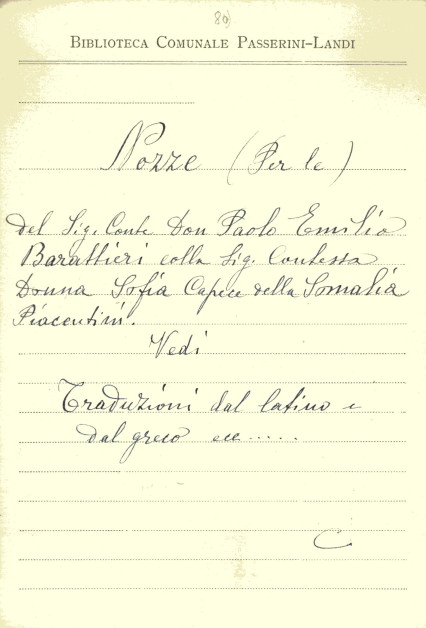 80)
BIBLIOTECA COMUNALE PASSERINI-LANDI
Nozze (Per le)
del Sig. Conte Don Paolo Emilio
Barattieri colla Sig. Contessa
Donna Sofia Capece della Somalia
Piacentini.
Vedi
Traduzioni dal latino e
dal greco ecc.....
C